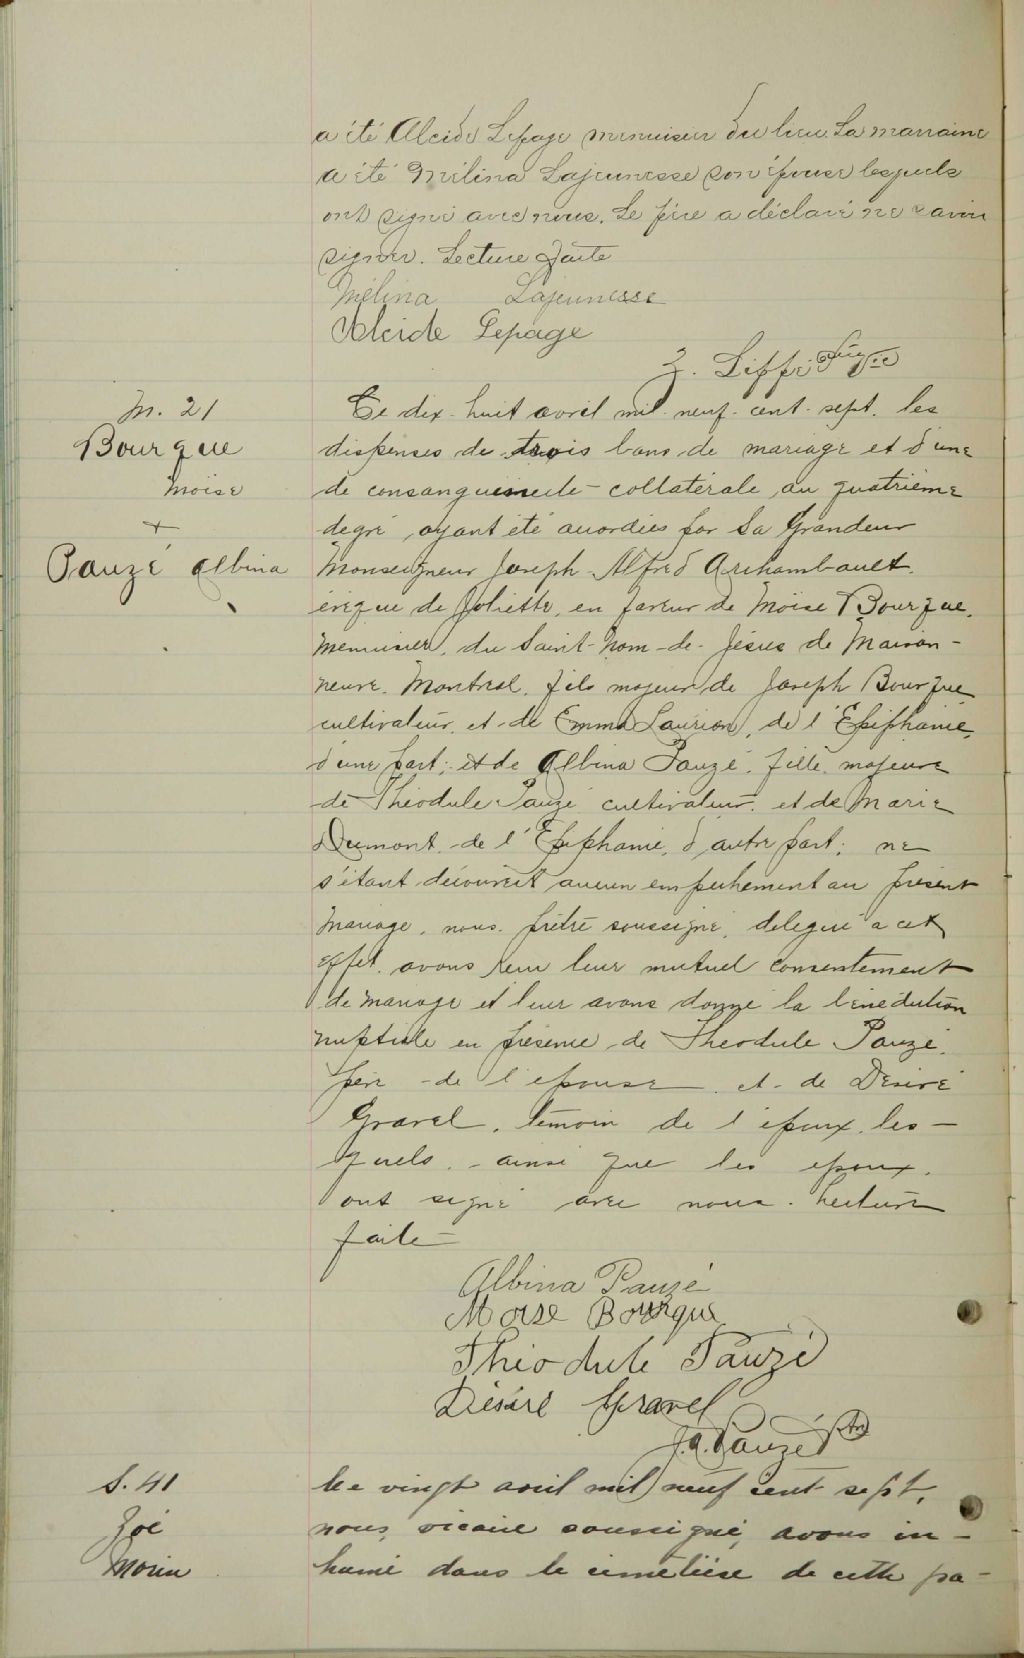 a été Alcide Lepage menuisier du lieu La marraine
a été Mélina Lajeunesse son épouse lesquels
ont signé avec nous. Le père a déclaré ne savoir
signer. Lecture faite
Mélina Lajeunesse
Alcide Lepage
Z.
M. 21
Bourque
Moise
+
Pauzé Albina
Le dix-huit avril mil-neuf-cent-sept. les
dispenses de trois bans de mariage et d'une
de consanguinité collatérale au quatrième
degré, ayant été accordées par Sa Grandeur
Monseigneur Joseph-Alfred Archambault.
évêque de Joliette, en faveur de Moïse Bourque.
menuisier, du Saint-Nom-de-Jésus de Maison-
neuve. Montréal. fils majeur de Joseph Bourque
cultivateur, et de Emma Laurion, de l'Epiphanie,
d'une part; et de Albina Pauzé, fille majeure
de Théodule Pauzé cultivateur. et de Marie
Dumont de l'Epiphanie, d'autre part; ne
s'étant découvert aucun empêchement au présent
mariage, nous. prêtre soussigné, délégué a cet
effet, avons reçu leur mutuel consentement
de mariage et leur avons donné la bénédiction
nuptiale en présence de Théodule Pauzé.
père de l'epouse et de Desiré
Gravel, témoin de l'époux, les-
quels, ainsi que les epoux,
ont signé avec nous. Lecture
faite
Albina Pauzé
Moïse Bourque
Théodule Pauzé
Désiré Gravel
J. A. Pauzé Ptre
S. 41
Zoé
Morin
Le vingt avril mil neuf cent sept,
nous, vicaire soussigné, avons in-
humé dans le cimetière de cette pa-